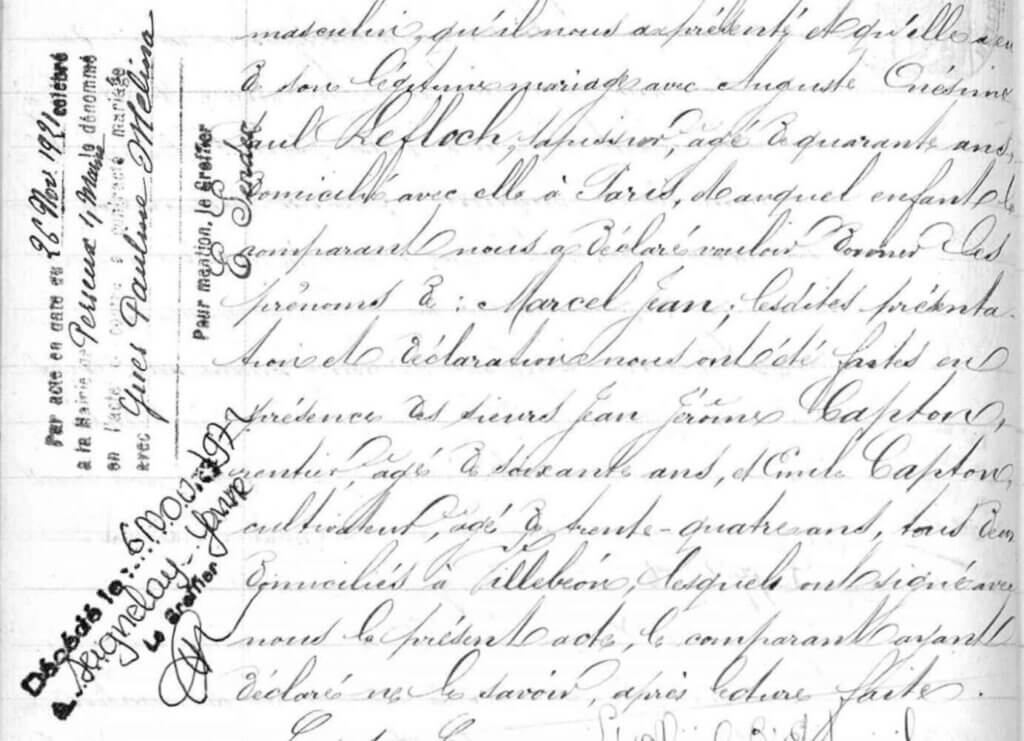 masculin, qu'il nous a présenté et qu'elle a eu
de son légitime mariage avec Auguste Onésime
Paul Lefloch, tapissier, âgé de quarante ans,
domicilié avec elle à Paris, et auquel enfant le
comparant nous a déclaré vouloir donner les
prénoms de : Marcel Jean ; lesdites présenta-
tion et déclaration nous ont été faites en
présence des sieurs Jean Jérôme Capton,
rentier, âgé de soixante ans, et Emile Capton,
cultivateur, âgé de trente-quatre ans, tous deux
domiciliés à Villebéon, lesquels ont signé avec
nous le présent acte, le comparant ayant
déclaré ne le savoir, après lecture faite.
Par acte en date du 26 Nov. 1921 célébré
à la Mairie de Perreux s/ Marne le dénommé
en l'acte ci-contre a contracté mariage
avec Yves Pauline Melina
Pour mention, le Greffier
Décédé le : 6 Nov.
à Seignelay - Yonne
Le Greffier